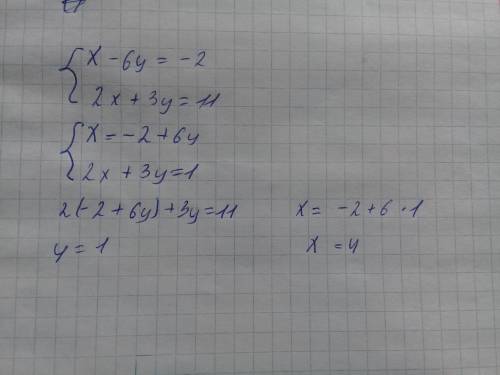 x - 6y = -2
2x + 3y = 11
x = -2 + 6y
2x + 3y = 1
2(-2 + 6y) + 3y = 11
y = 1
x = -2 + 6 · 1
x = 4